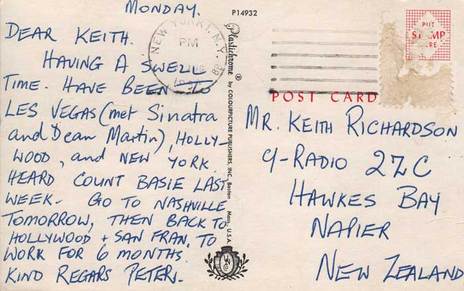 MONDAY.
P14932
DEAR KEITH.
HAVING A SWELL
TIME. HAVE BEEN TO
LES VEGAS (met Sinatra
and Dean Martin), HOLLY-
WOOD, and NEW YORK.
HEARD COUNT BASIE LAST
WEEK. GO TO NASHVILLE
TOMORROW, THEN BACK TO
HOLLYWOOD + SAN FRAN. TO
WORK FOR 6 MONTHS.
KIND REGARS PETER.
Plastichrome
by COLOURPICTURE PUBLISHERS, INC., Boston Mass., U.S.A.
NEW YORK, N.Y.
PM
PUT
STAMP
HERE
POST CARD
MR. KEITH RICHARDSON
C/-RADIO 2ZC
HAWKES BAY
NAPIER
NEW ZEALAND